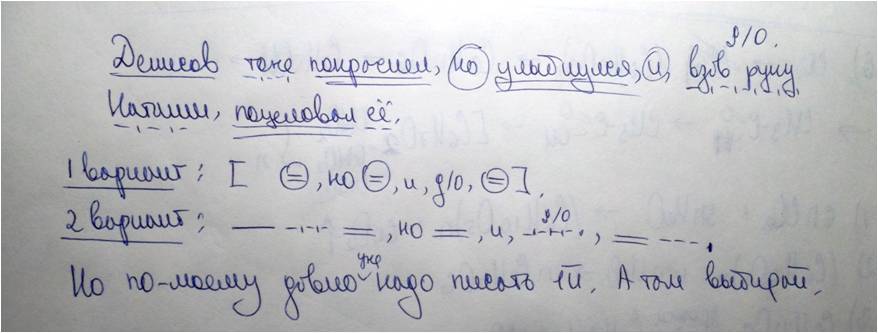 д/о.
Денисов тоже покраснел, но улыбнулся, и, взяв руку
Наташи, поцеловал её.
1 вариант: [ =, но =, и, д/о, = ].
2 вариант: =, но =, и, д/о, = .
уже
Но по-моему давно надо писать 1й. А там выбирай.